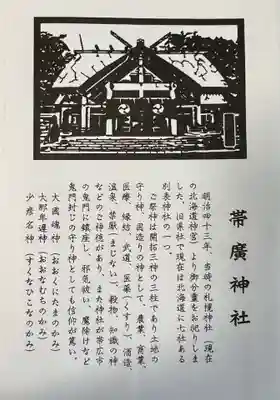 帯廣神社
明治四十三年、当時の札幌神社（現在
の北海道神宮）より御分霊をお祀りしま
した。旧県社で現在は北海道に七社ある
別表神社の一つです。
ご祭神は開拓三神の三柱であり土地の
守り神、国造りの神として、農業、商業、
医療、縁結、武道、医薬（くすり）、酒造、
温泉、禁厭（まじない）、穀物、知識の神
などのご神徳があり、また神社が帯広市
の鬼門に鎮座し、邪気祓い、魔除けなど
鬼門封じの守り神としても信仰が篤い。
大國魂神（おおくにたまのかみ）
大那牟遅神（おおなむちのかみ）
少彦名神（すくなひこなのかみ）